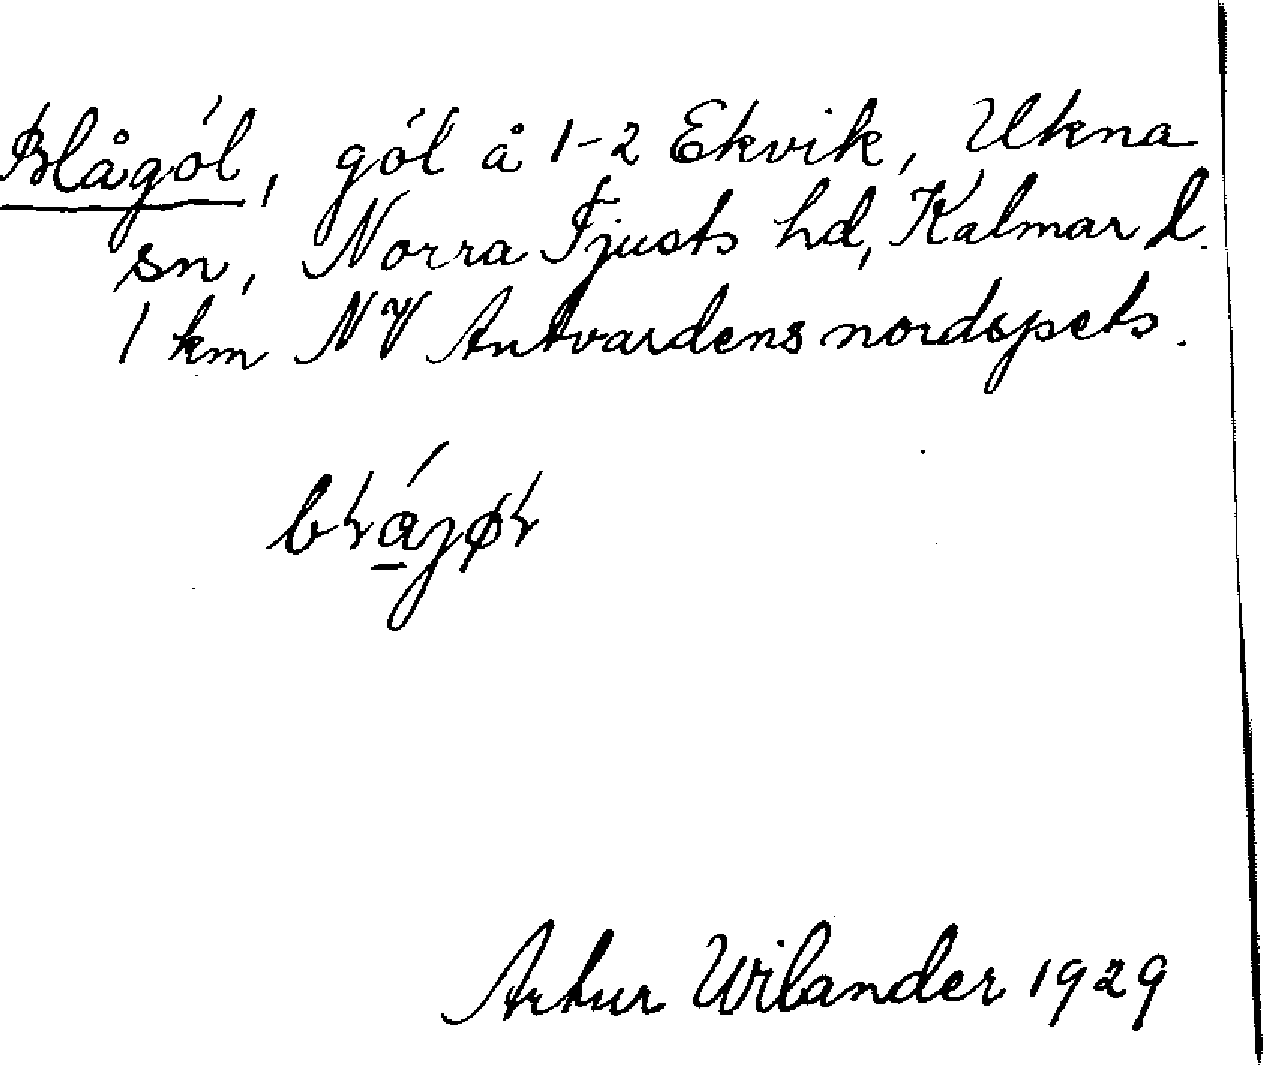 Blågól, gól å 1-2 Ekvik, Ukna
sn, Norra Tjusts hd, Kalmar l.
1 km NV Antvardens nordspets.
Artur Wilander 1929